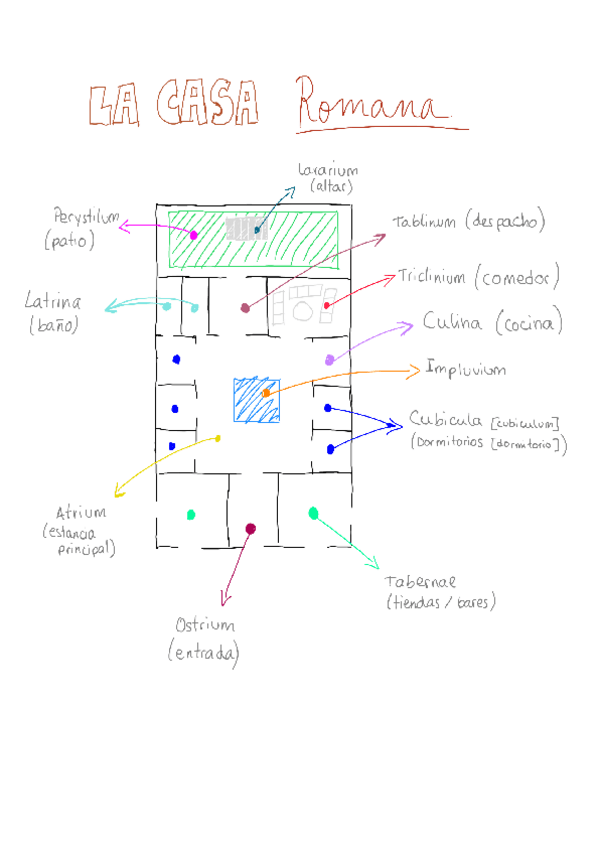 LA CASA Romana
Lararium
(altar)
Perystilum
(patio)
Tablinum (despacho)
Triclinium (comedor)
Latrina
(baño)
Culina (cocina)
Impluvium
Cubicula [cubiculum]
(Dormitorios [dormitorio])
Atrium
(estancia
principal)
Tabernae
(tiendas / bares)
Ostrium
(entrada)